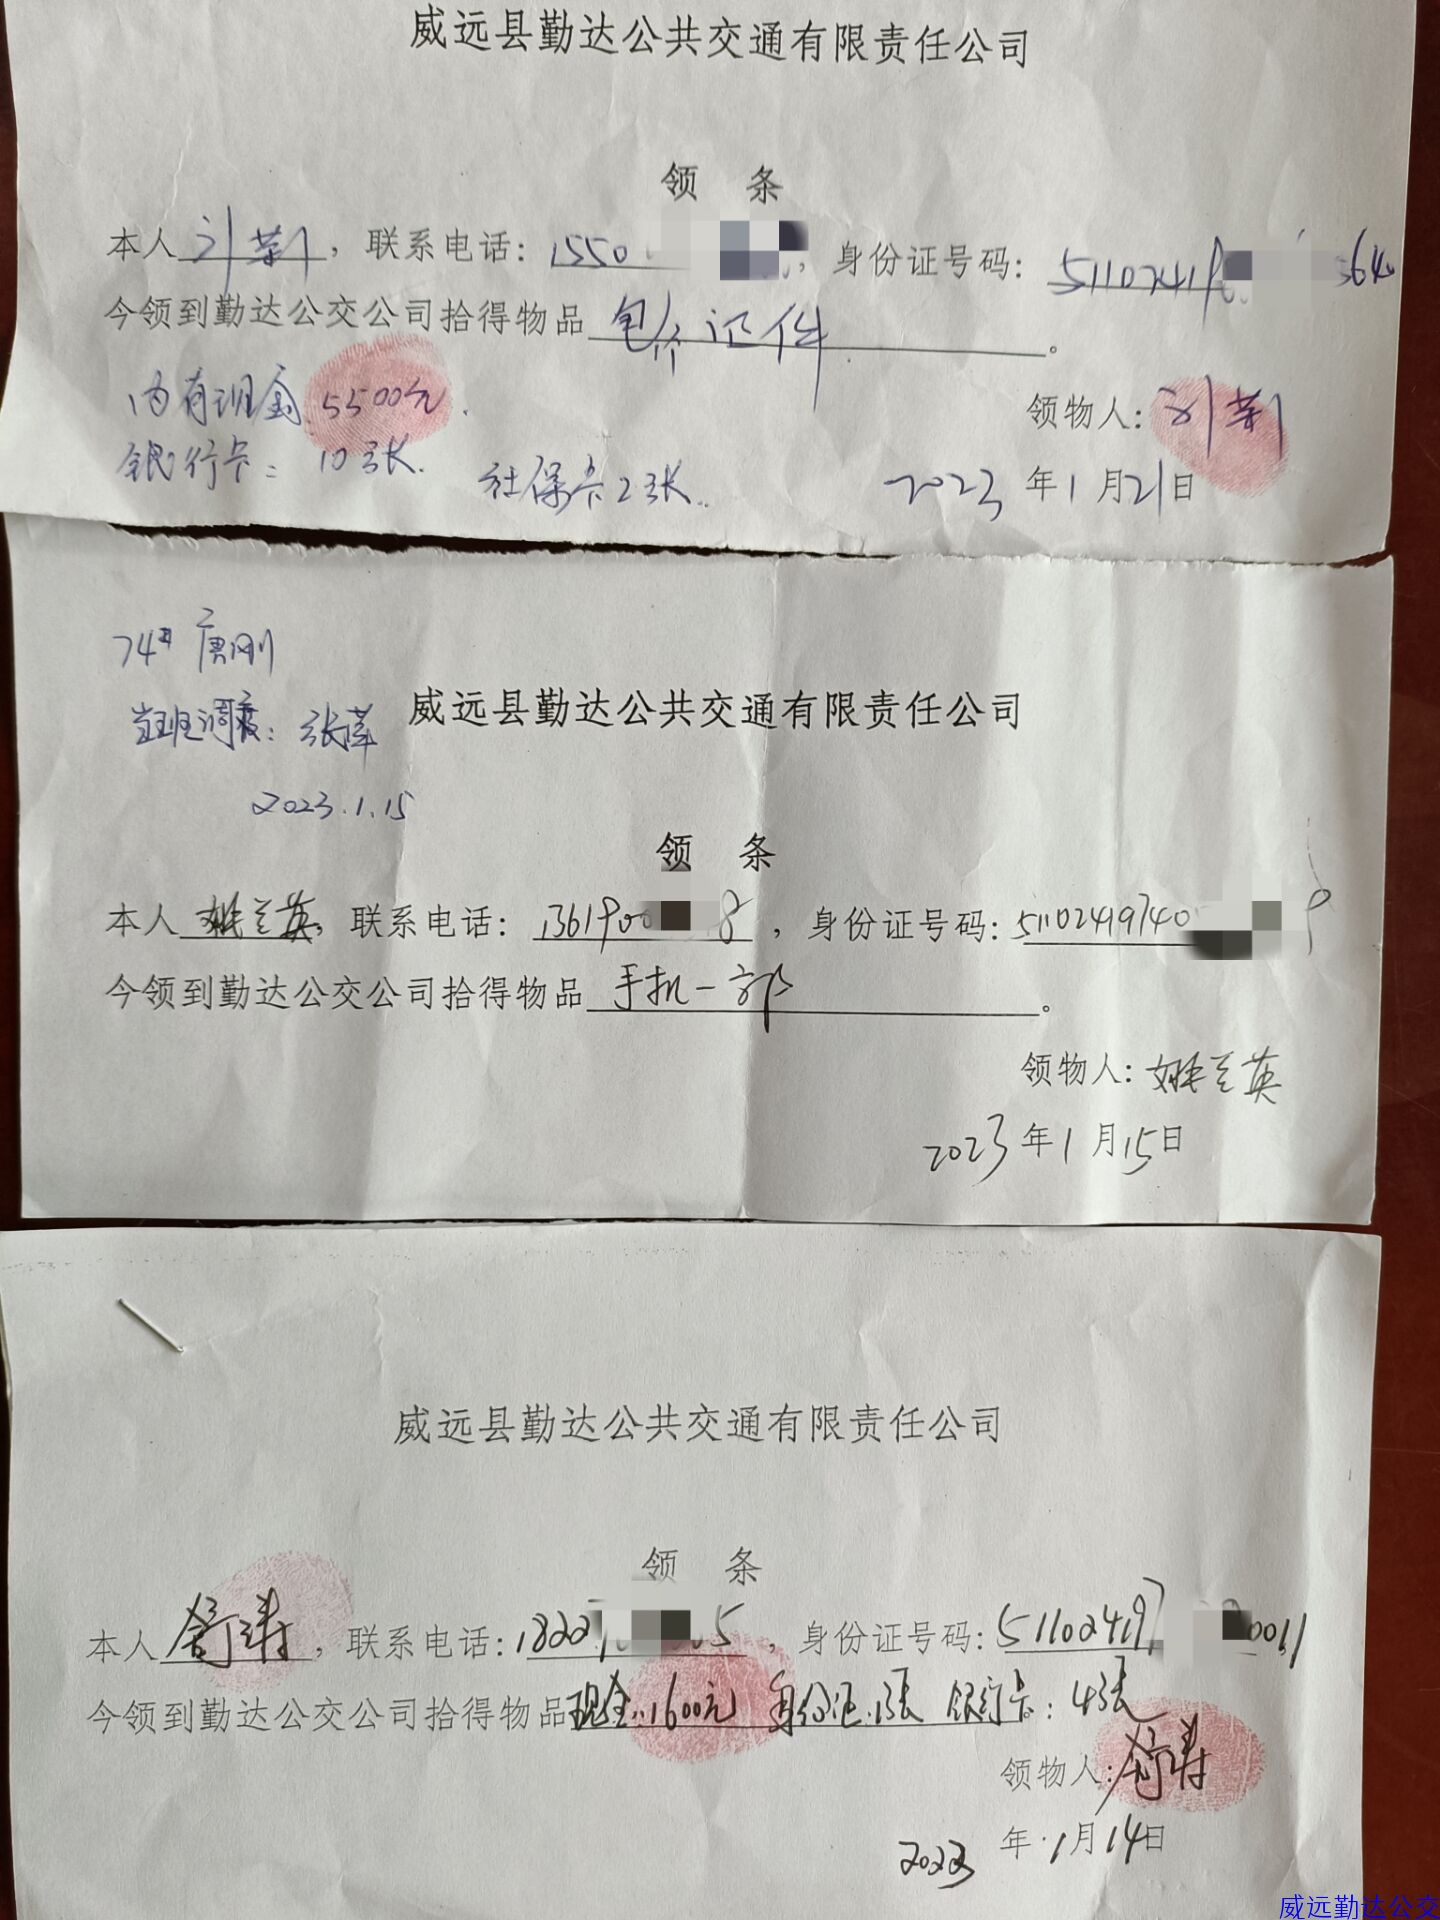 威远县勤达公共交通有限责任公司
领 条
本人 刘荣，联系电话：1550 ，身份证号码：51102419 564
今领到勤达公交公司拾得物品 包个 证件 。
内有现金 5500元.
领物人：刘荣
银行卡：10张. 社保卡2张.
2023年1月21日
74# 唐刚
当班调度：张萍
威远县勤达公共交通有限责任公司
2023.1.15
领 条
本人 姚兰英，联系电话：136190 8，身份证号码：51102419740 9
今领到勤达公交公司拾得物品 手机一部 。
领物人：姚兰英
2023年1月15日
威远县勤达公共交通有限责任公司
领 条
本人 舒涛，联系电话：1822 5，身份证号码：511024197 0011
今领到勤达公交公司拾得物品 现金：1600元 身份证：1张 银行卡：4张
领物人：舒涛
2023年1月14日
威远勤达公交